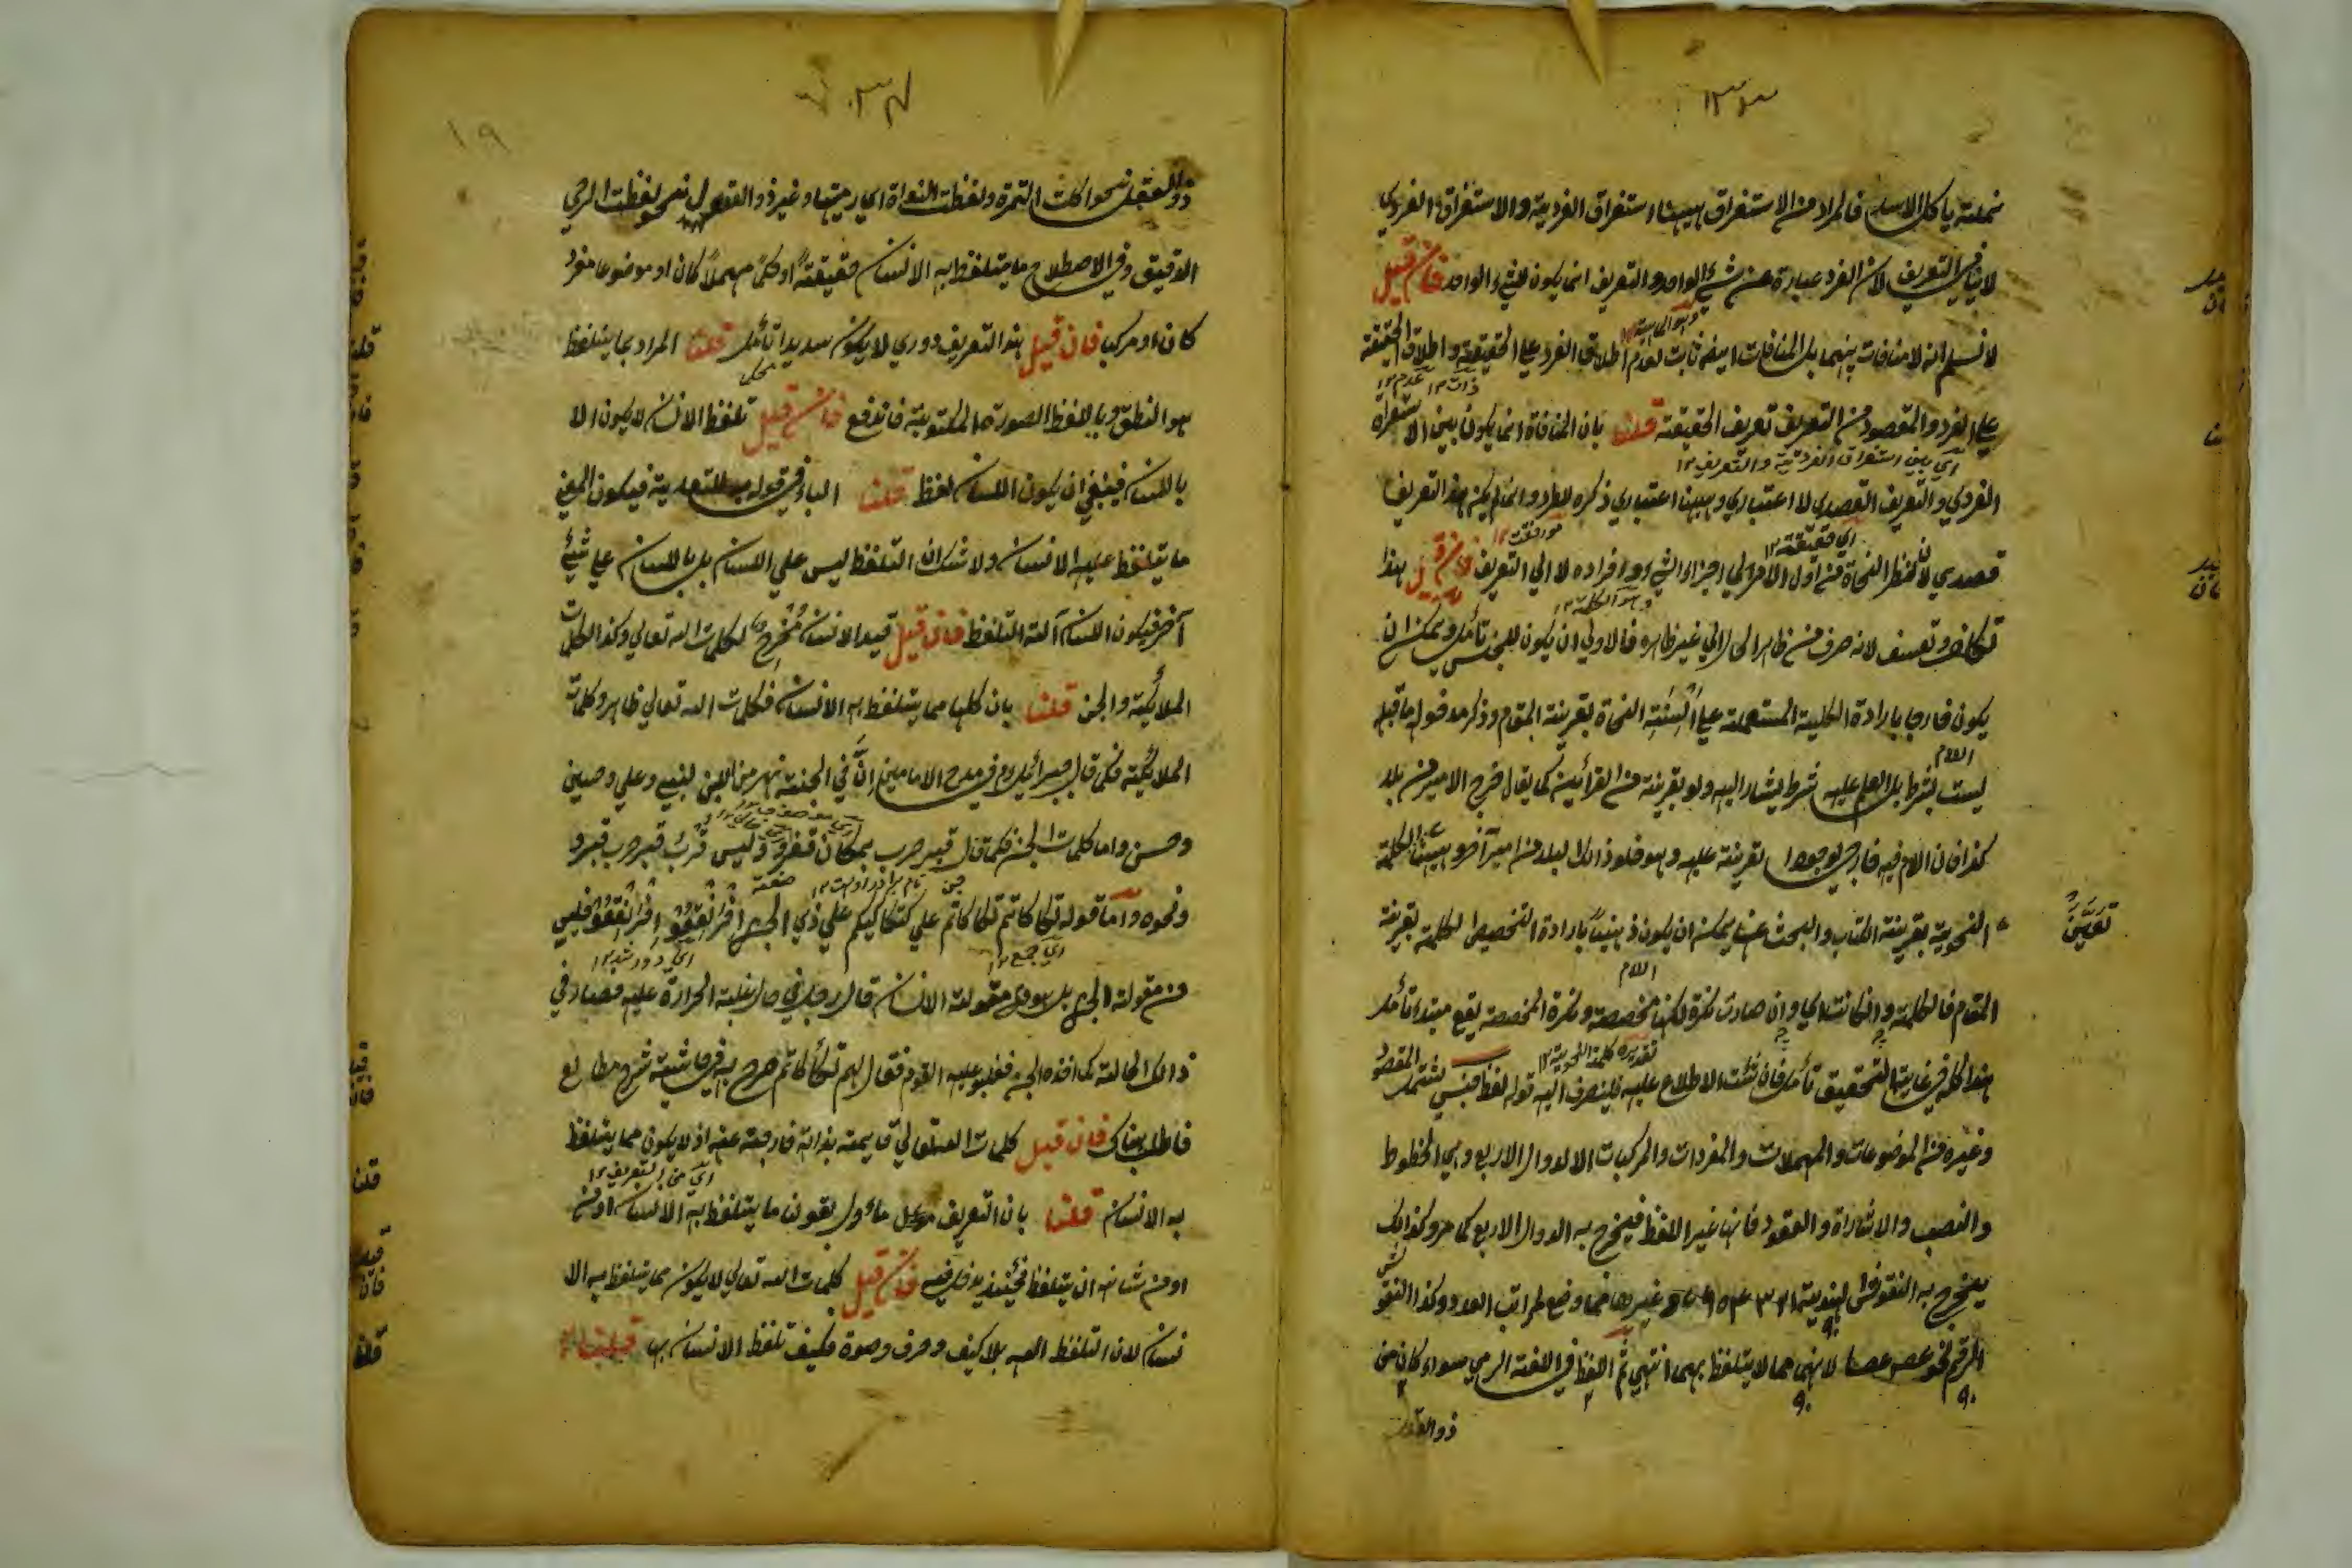 فالمراد من الاستغراق ههنا استغراق الفردية والاستغراق الفردي
لا ينافي التعريف لان الفرد عبارة عن شيء الواحد والتعريف انما يكون للشيء الواحد فان قيل
لا نسلم انه لا منافات بينهما بل المنافات ايضا ثابت لعدم اطلاق الفرد علي الحقيقة واطلاق الحقيقة
علي الفرد والمقصود من التعريف تعريف الحقيقة قلنا بان المنافاة انما يكون بين الاستغراق
اي بين استغراق الفردية والتعريف ١٢
الفردي والتعريف القصدي لا اعتباري وههنا اعتباري ذكره للطرد وانما لم يكن هذا التعريف
اي حقيقة ١٢
قصدي لان نظر النحاة من اول الامر الي اجزاء الشيء وافراده لا الي التعريف فان قيل هذا
وهو الكلمة ١٢
تكلف وتعسف لانه صرف من ظاهر الحال الي غير ظاهره فالاولي ان يكون للجنس تأمل ويمكن ان
يكون خارجا بارادة الكلمة المستعملة علي السنة النحاة بقرينة المقام وذكر مدخول ما قبله
اللام
ليست بشرط بل العلم عليه شرط يشار اليه ولو بقرينة من القرائن كما يقال خرج الامير من بلد
كذا فان اللام فيه خارجي لوجود القرينة عليه وهو خلو ذالك البلد من امير آخر وههنا الكلمة
النحوية بقرينة الكتاب والبحث عنها يمكن ان يكون ذهنيا بارادة التخصيص الكلمة بقرينة
تعين
اللام
المقام فالكلمة وان كانت وان صارت نكرة لكنها مخصصة ونكرة المخصصة يقع مبتدا تأمل
تقديره كلمة النحوية ١٢
هذا كله في غاية التحقيق تأمل فان شئت الاطلاع عليه فلينصرف اليه قوله لفظ جنس يشتمل المقصود
وغيره من الموضوعات والمهملات والمفردات والمركبات الا الدوال الاربع وهي الخطوط
والنصب والاشارة والعقود فانها غير اللفظ فيخرج به الدوال الاربع كما مر وكذالك
يخرج به النقوش الهندية وغيرها مما وضع لمراتب العدد وكذا النقوش
الرقم نحو لانهما مما لا يتلفظ بهما انتهي ثم اللفظ في اللغة الرمي سواء كان من
ذو العقل
١٩
ذو العقل نحو اكلت التمرة ولفظت النواة اي رميتها وغير ذو العقول نحو لفظت الرحي
الدقيق وفي الاصطلاح ما يتلفظ به الانسان حقيقة او حكما مهملا كان او موضوعا مفردا
كان او مركب فان قيل هذا التعريف دوري لا يكون سديدا تأمل قلنا المراد بما يتلفظ
هو النطق وباللفظ الصورة المكتوبية فاندفع فان قيل تلفظ الانسان لا يكون الا
باللسان فينبغي ان يكون اللسان لفظ قلنا الباء في قوله به للتعدية فيكون المعني
ما يتلفظ عليه الانسان ولا شك ان التلفظ ليس علي اللسان بل باللسان علي شيء
آخر فيكون اللسان آلة التلفظ فان قيل قيد الانسان مخرج لكلمات الله تعالي وكذا الكلمات
الملائكة والجن قلنا بان كلها مما يتلفظ به الانسان فكلمات الله تعالي ظاهر وكلمات
الملائكة فكما قال جبرائيل في مدح الامامين ان في الجنة نهر من اللبن لنبي وعلي وحسين
وحسن واما كلمات الجن فكما قال قبر حرب بمكان قفر وليس قرب قبر حرب قبر و
ونحوه واما قوله تكاكاتم تكاكاتم علي كتكاكيكم علي ذي الجن افرنقعوا افرنقعوا فليس
اي جمع ١٢
اي دور شد ١٢
من مقولة الجن بل هو من مقولة الانسان قال رجل في حال غلبة الحرارة عليه فصار في
ذالك الحالة كما اخذه الجن فغلبوا عليه القوم فقال لهم تكأكأتم صرح به في حاشية شرح مطالع
فاطلب هناك فان قيل كلمات الله تعالي قايمة بذاته خارجة عنه اذ لا يكون مما يتلفظ
اي من التعريف ١٢
به الانسان قلنا بان التعريف مأول بقولنا ما يتلفظ به الانسان او من
او من شانه ان يتلفظ فحينئذ يدخل فيه فان قيل كلمات الله تعالي لا يكون مما يتلفظ به الا
نسان لان التلفظ الله بلا كيف وحرف وصوة فكيف تلفظ الانسان بها قلنا